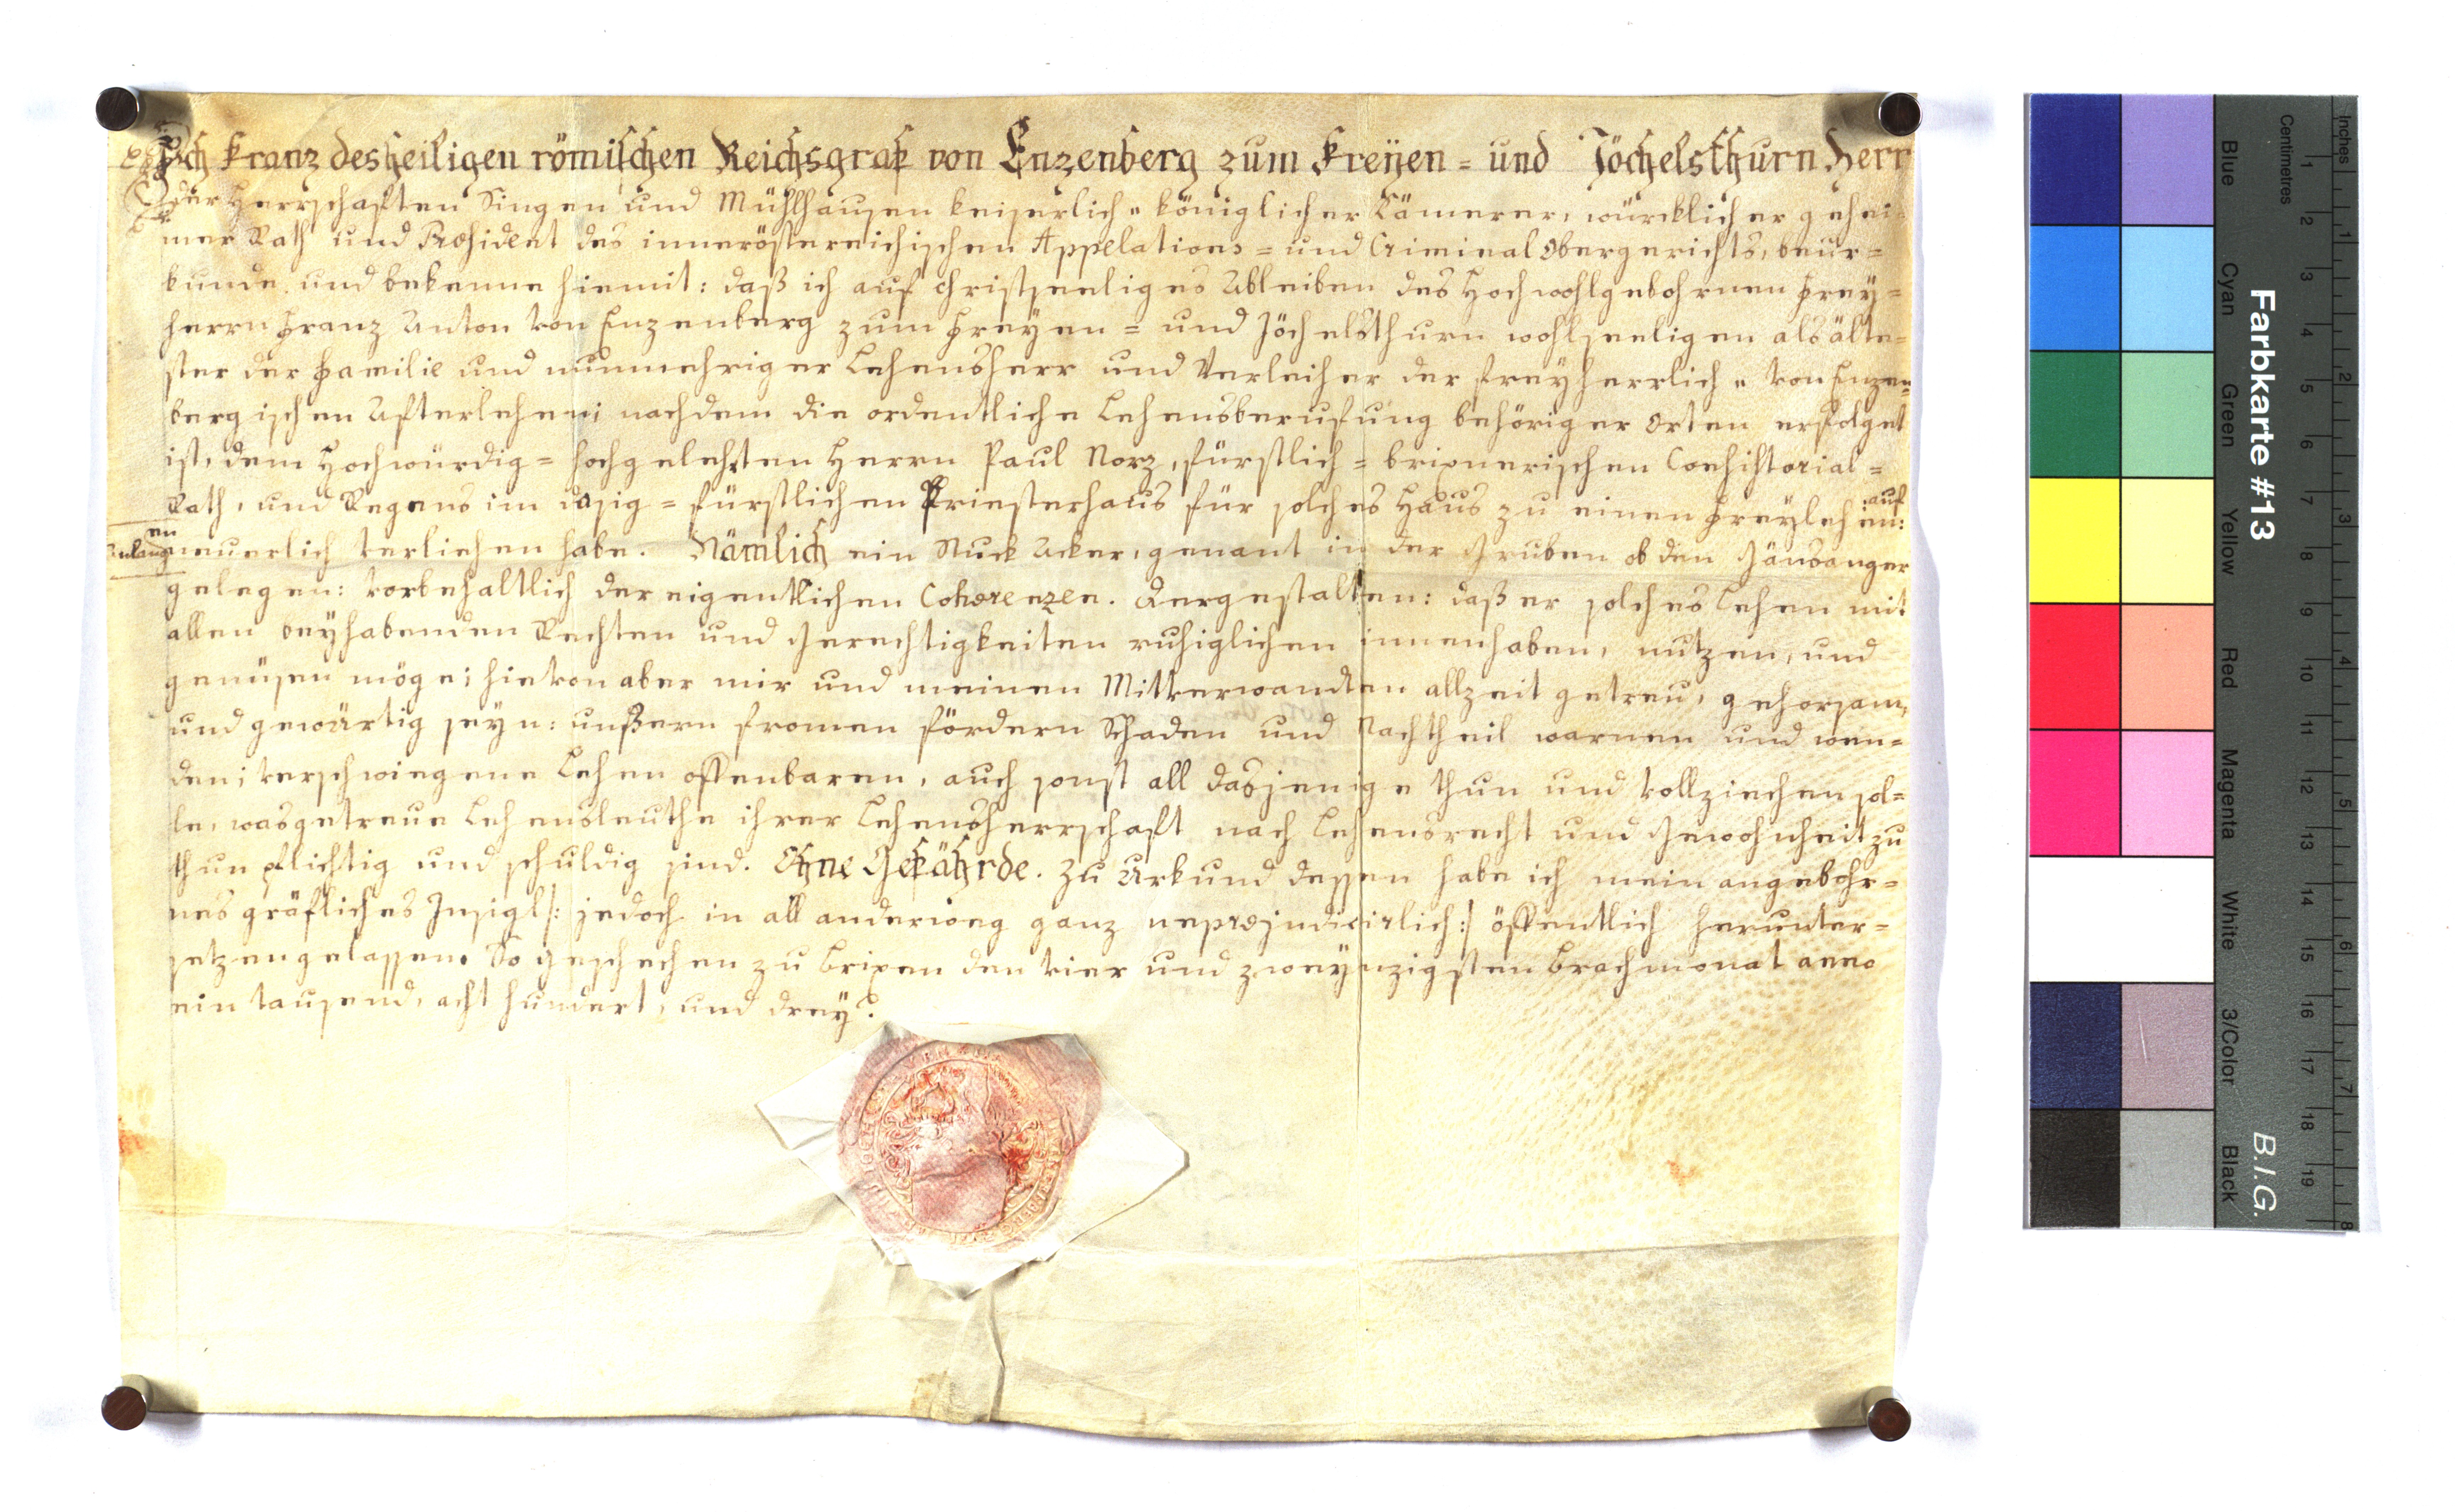 Ich Franz des heiligen römischen Reichsgraf von Enzenberg zum Freÿen= und Jöchelsthurn Herr
der Herrschaften Singen und Mühlhausen keiserlich= königlicher Kämerer, würcklicher gehei=
mer Rath und Præsident des inneröstereichischen Appelations= und Criminal Obergerichts, beur=
kunde und bekenne hiemit: daß ich auf christseeliges Ableiben des Hochwohlgebohrnen Frey=
herrn Franz Anton von Enzenberg zum Freÿen= und Jöchelsthurn wohlseeligen als älte=
ster der Familie und nunmehriger Lehensherr und Verleiher der freyherrlich= von Enzen=
bergischen Afterlehen; nachdem die ordentliche Lehensberufung behöriger Orten erfolget
ist, dem Hochwürdig= hochgelehrten Herrn Paul Norz, fürstlich= brixnerischen Consistorial=
Rath, und Regens im dasig= fürstlichen Priesterhaus für solches Haus zu einen Freylehen: auf
Anlangen neuerlich verliehen habe. Nämlich ein Stuck Acker, genant in der Gruben ob den Gänsanger
gelegen: vorbehaltlich der eigentlichen Cohærenzen. Dergestalten: daß er solches Lehen mit
allen beyhabenden Rechten und Gerechtigkeiten ruhiglichen innenhaben, nutzen, und
genüsen möge; hievon aber mir und meinen Mitverwandten allzeit getreu, gehorsam,
und gewärtig seyn: unßern fromen fördern Schaden und Nachtheil warnen und wen=
den; verschwiegene Lehen offenbaren, auch sonst all dasjenige thun und vollziechen sol=
le, was getreue Lehensleuthe ihrer Lehensherrschaft nach Lehensrecht und Gewohnheit zu
thun pflichtig und schuldig sind. Ohne Gefährde. Zu Urkund dessen habe ich mein angebohr=
nes gräfliches Insigl |: jedoch in all anderweg ganz unpræjudicirlich :| öffentlich herunter=
setzen gelassen. So geschechen zu Brixen den vier und zweÿnzigsten Brachmonat anno
ein tausend, acht hundert, und dreÿ.
Farbkarte #13
B.I.G.
Centimetres
Inches
Blue
Cyan
Green
Yellow
Red
Magenta
White
3/Color
Black
1 2 3 4 5 6 7 8 9 10 11 12 13 14 15 16 17 18 19
1 2 3 4 5 6 7 8